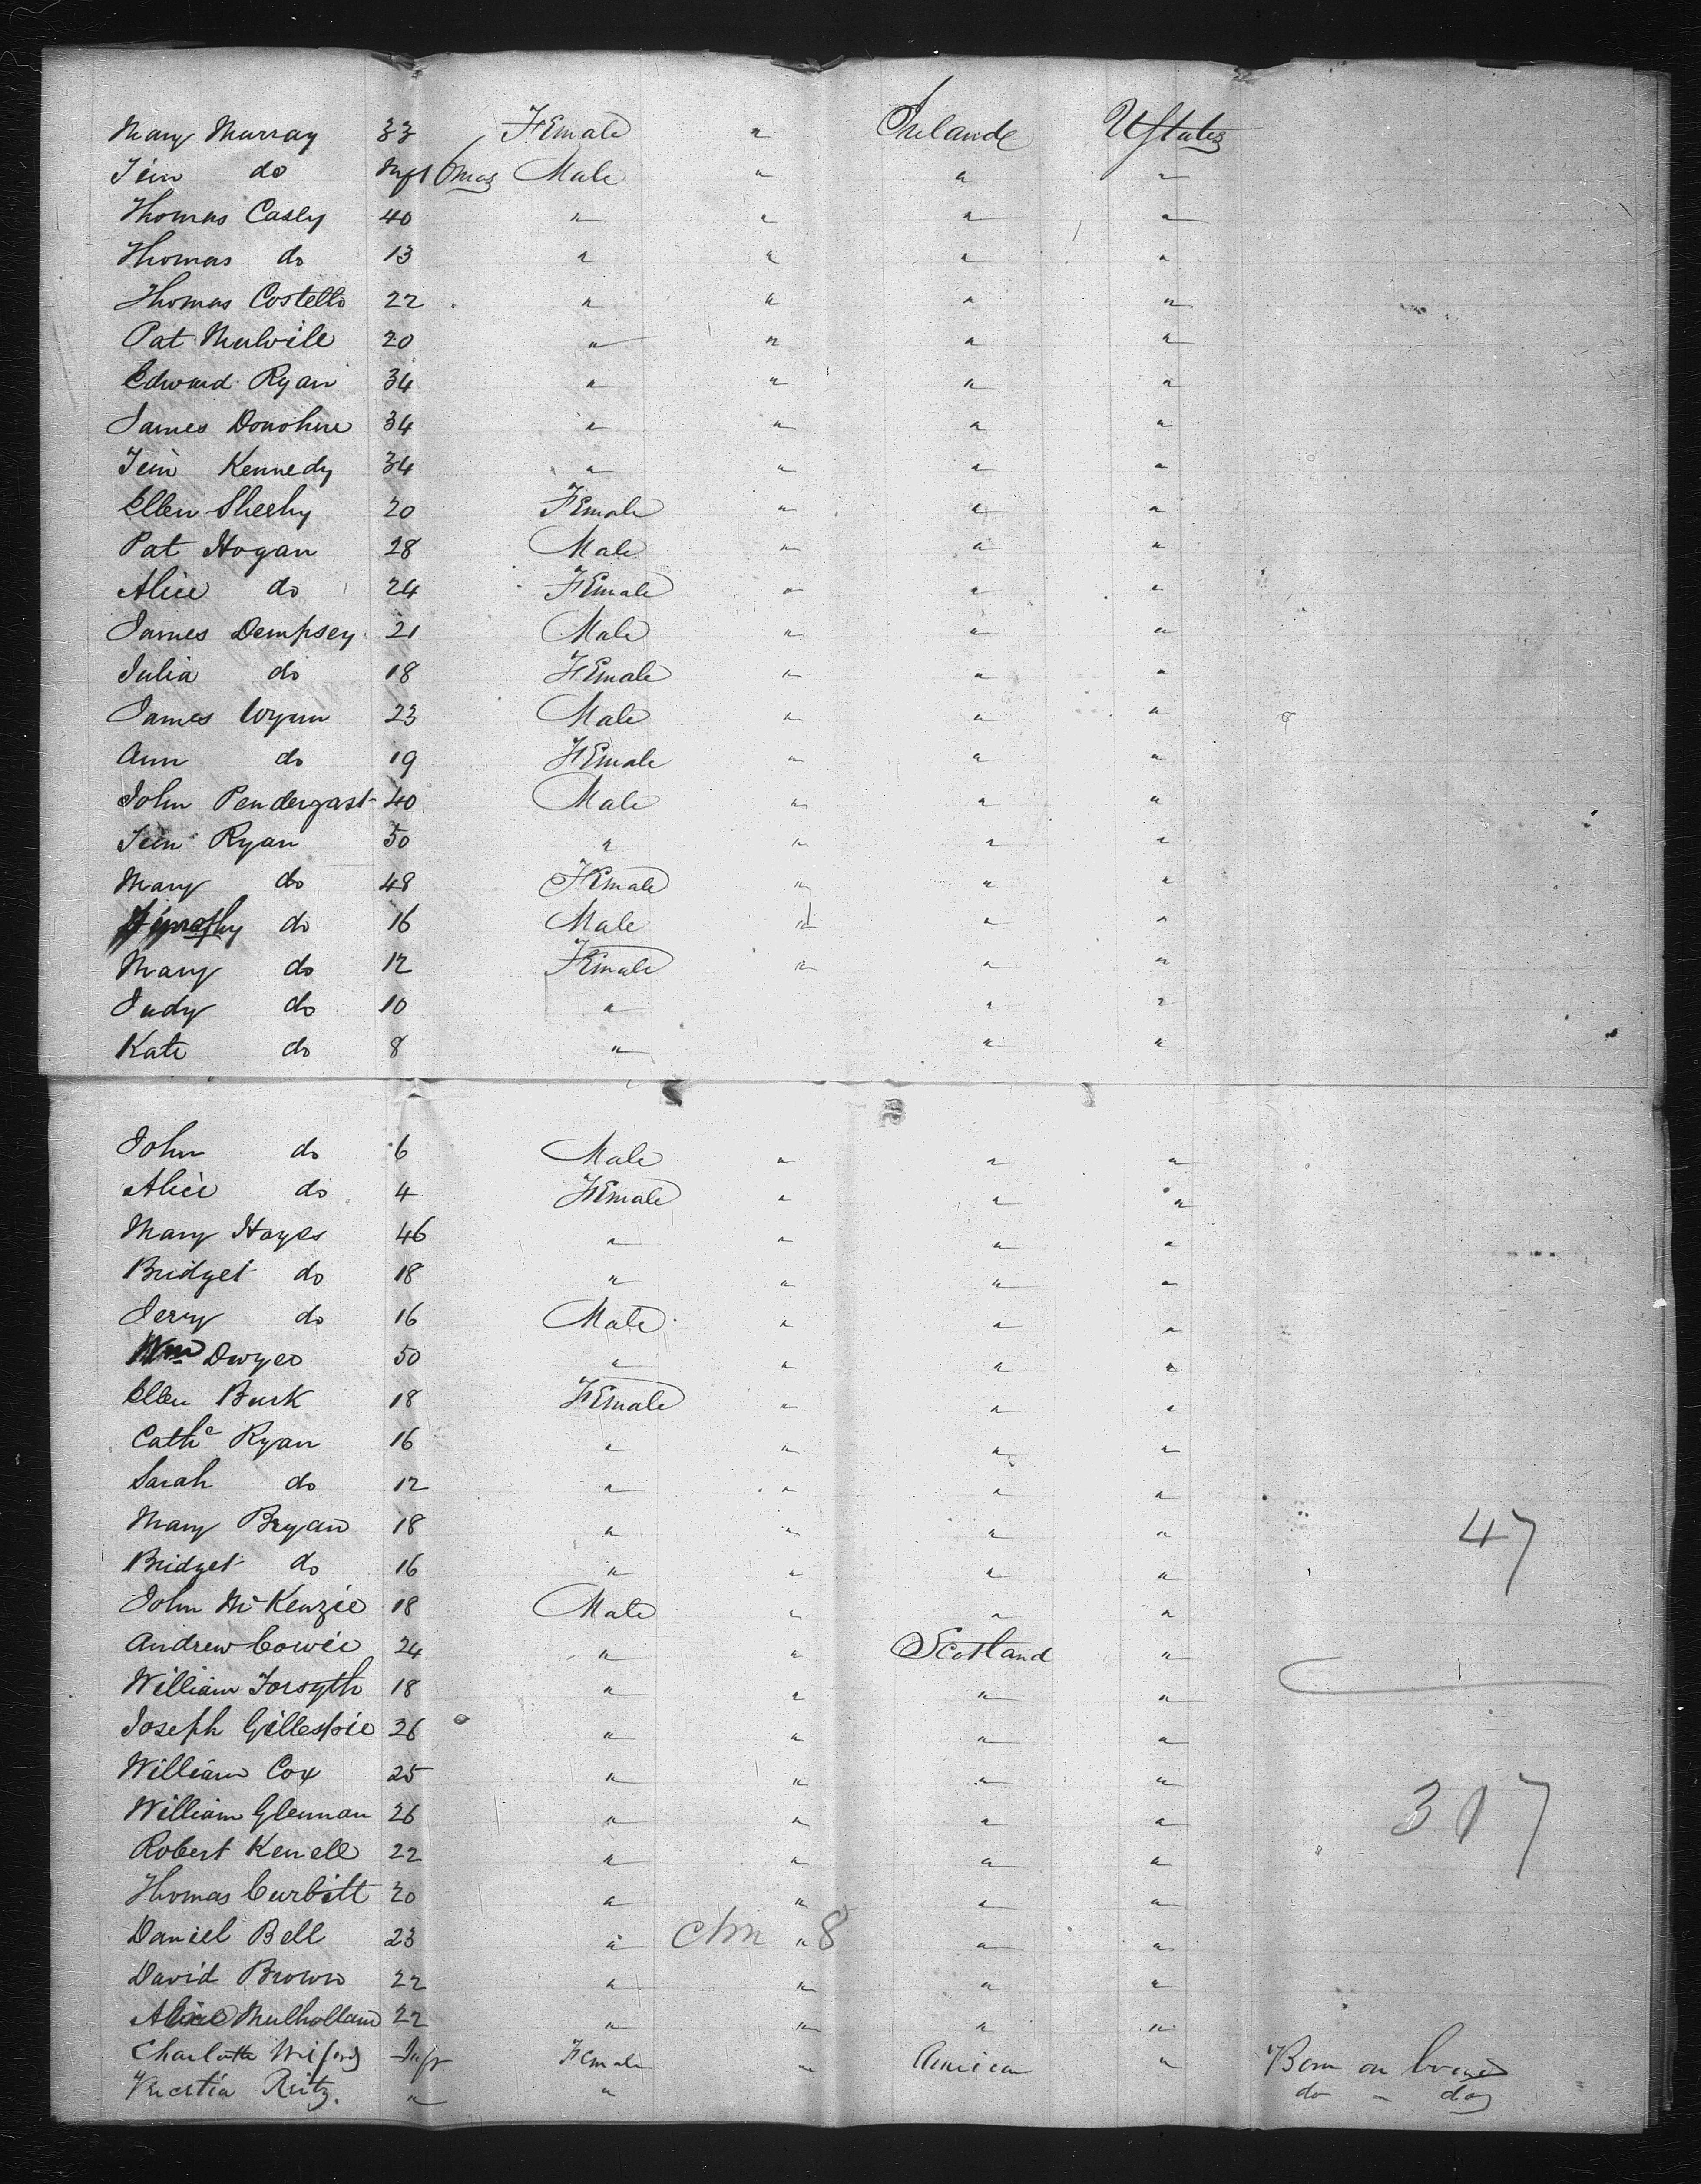 Mary Murray 33 Female " Ireland UStates
Tim do Inft 6mos Male " " "
Thomas Casey 40 " " " "
Thomas do 13 " " " "
Thomas Costello 22 " " " "
Pat Mulvile 20 " " " "
Edward Ryan 34 " " " "
James Donohue 34 " " " "
Tim Kennedy 34 " " " "
Ellen Sheehy 20 Female " " "
Pat Hogan 28 Male " " "
Alice do 24 Female " " "
James Dempsey 21 Male " " "
Julia do 18 Female " " "
James Wynn 23 Male " " "
Ann do 19 Female " " "
John Pendergast 40 Male " " "
Tim Ryan 50 " " " "
Mary do 48 Female " " "
Timothy do 16 Male " " "
Mary do 12 Female " " "
Judy do 10 " " "
Kate do 8 " " "
John do 6 Male " " "
Alice do 4 Female " " "
Mary Hayes 46 " " " "
Bridget do 18 " " " "
Jerry do 16 Male " " "
Wm Dwyer 50 " " " "
Ellen Burk 18 Female " " "
Cathe Ryan 16 " " " "
Sarah do 12 " " " "
Mary Bryan 18 " " " "
47
Bridget do 16 " " " "
John McKenzie 18 Male " " "
Andrew Cowie 24 " " Scotland "
William Forsyth 18 " " " "
Joseph Gillespie 26 " " " "
William Cox 25 " " " "
William Glennan 26 " " " "
317
Robert Kenell 22 " " " "
Thomas Curbitt 20 " " " "
Daniel Bell 23 " " 8 " "
David Brown 22 " " " "
Mulholland 22 " " " "
Charlotte Inft Female " American " Born on
Reitz. " " do " do